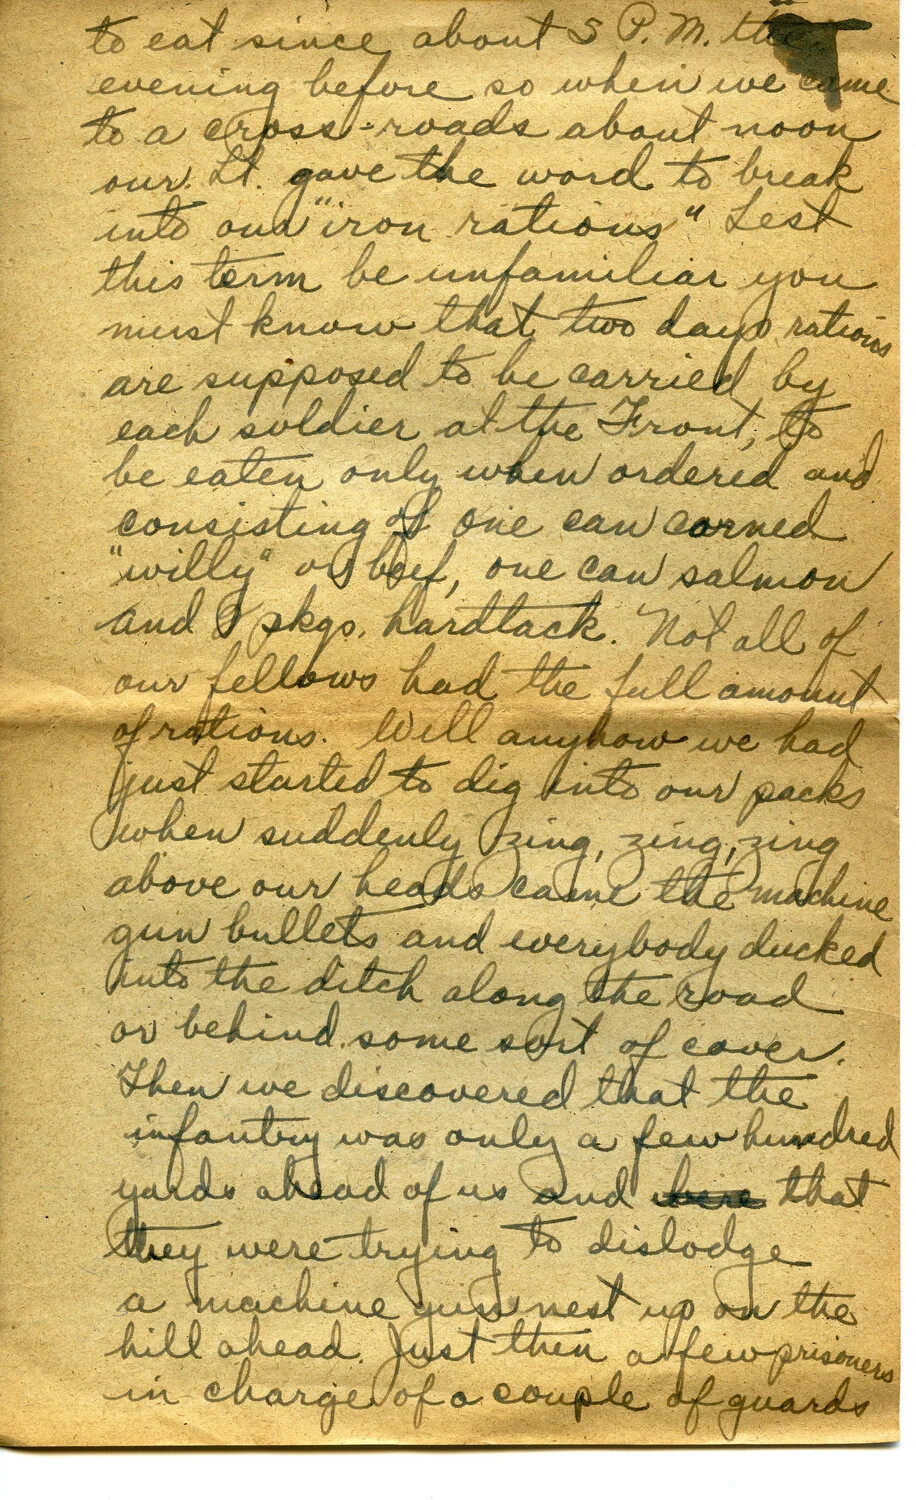 to eat since about 5 P.M. the
evening before so when we came
to a cross-roads about noon
our Lt. gave the word to break
into our "iron rations" Lest
this term be unfamiliar you
must know that two days rations
are supposed to be carried by
each soldier at the Front, to
be eaten only when ordered and
consisting of one can corned
"willy" or beef, one can salmon
and 8 pkgs. hardtack. Not all of
our fellows had the full amount
of rations. Well anyhow we had
just started to dig into our packs
when suddenly zing, zing, zing
above our heads came the machine
gun bullets and everybody ducked
into the ditch along the road
or behind some sort of cover.
Then we discovered that the
infantry was only a few hundred
yards ahead of us and were that
they were trying to dislodge
a machine gun nest up on the
hill ahead. Just then a few prisoners
in charge of a couple of guards